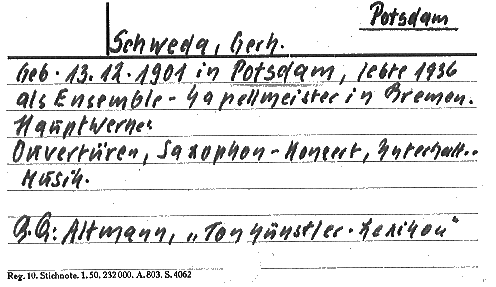 Potsdam
Schweda, Gerh.
Geb. 13.12.1901 in Potsdam, lebte 1936
als Ensemble-Kapellmeister in Bremen.
Hauptwerke:
Ouvertüren, Saxophon-Konzert, Unterhalt.-
Musik.
B.Q.: Altmann, „Tonkünstler-Lexikon"
Reg. 10. Stichnote. 1. 50. 232000. A. 803. S. 4062